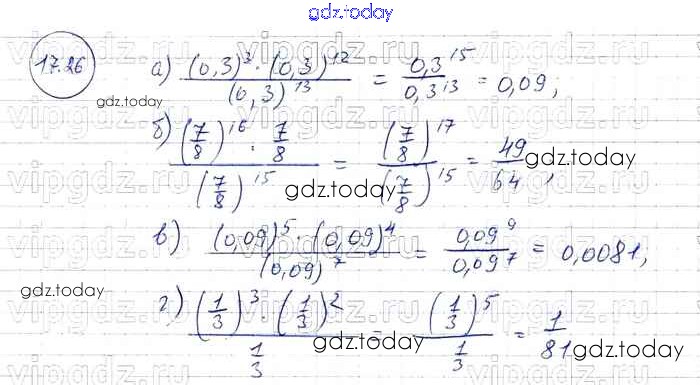 gdz.today
17.26
а) (0,3)³ · (0,3)¹² / (0,3)¹³ = 0,3¹⁵ / 0,3¹³ = 0,09;
gdz.today
б) (7/8)¹⁶ · 7/8 / (7/8)¹⁵ = (7/8)¹⁷ / (7/8)¹⁵ = 49/64,
gdz.today
gdz.today
в) (0,09)⁵ · (0,09)⁴ / (0,09)⁷ = 0,09⁹ / 0,09⁷ = 0,0081;
gdz.today
г) (1/3)³ · (1/3)² / 1/3 = (1/3)⁵ / 1/3 = 1/81
gdz.today
gdz.today
vipgdz.ru vipgdz.ru
vipgdz.ru vipgdz.ru
vipgdz.ru vipgdz.ru
vipgdz.ru vipgdz.ru
vipgdz.ru vipgdz.ru
vipgdz.ru vipgdz.ru